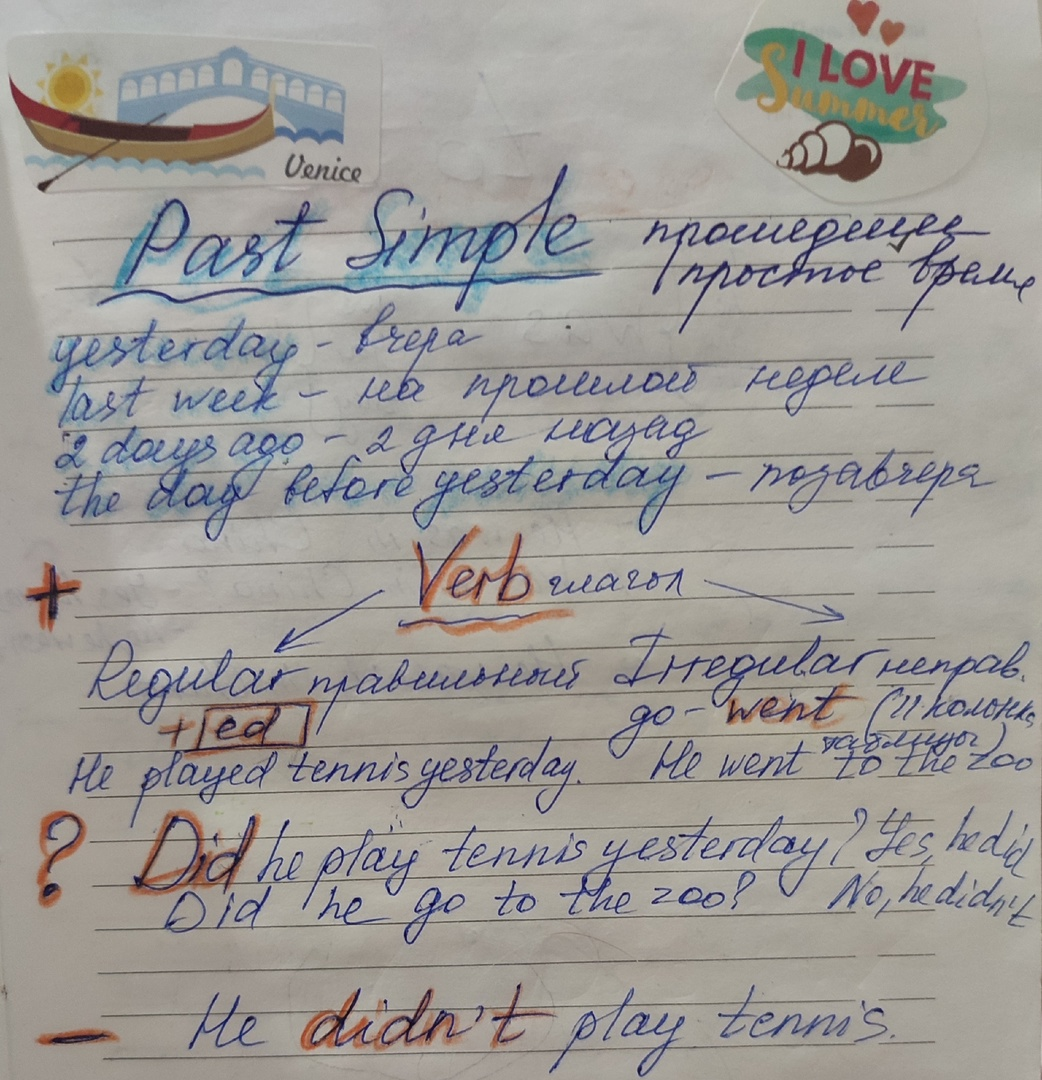 Venice
I LOVE
Summer
Past Simple прошедшее
простое время
yesterday - вчера
last week - на прошлой неделе
2 days ago - 2 дня назад
the day before yesterday - позавчера
+ Verb глагол
Regular правильный Irregular неправ.
+ ed go - went (II колонка
таблицы)
He played tennis yesterday. He went to the zoo
? Did he play tennis yesterday? Yes, he did
Did he go to the zoo? No, he didn't
- He didn't play tennis.